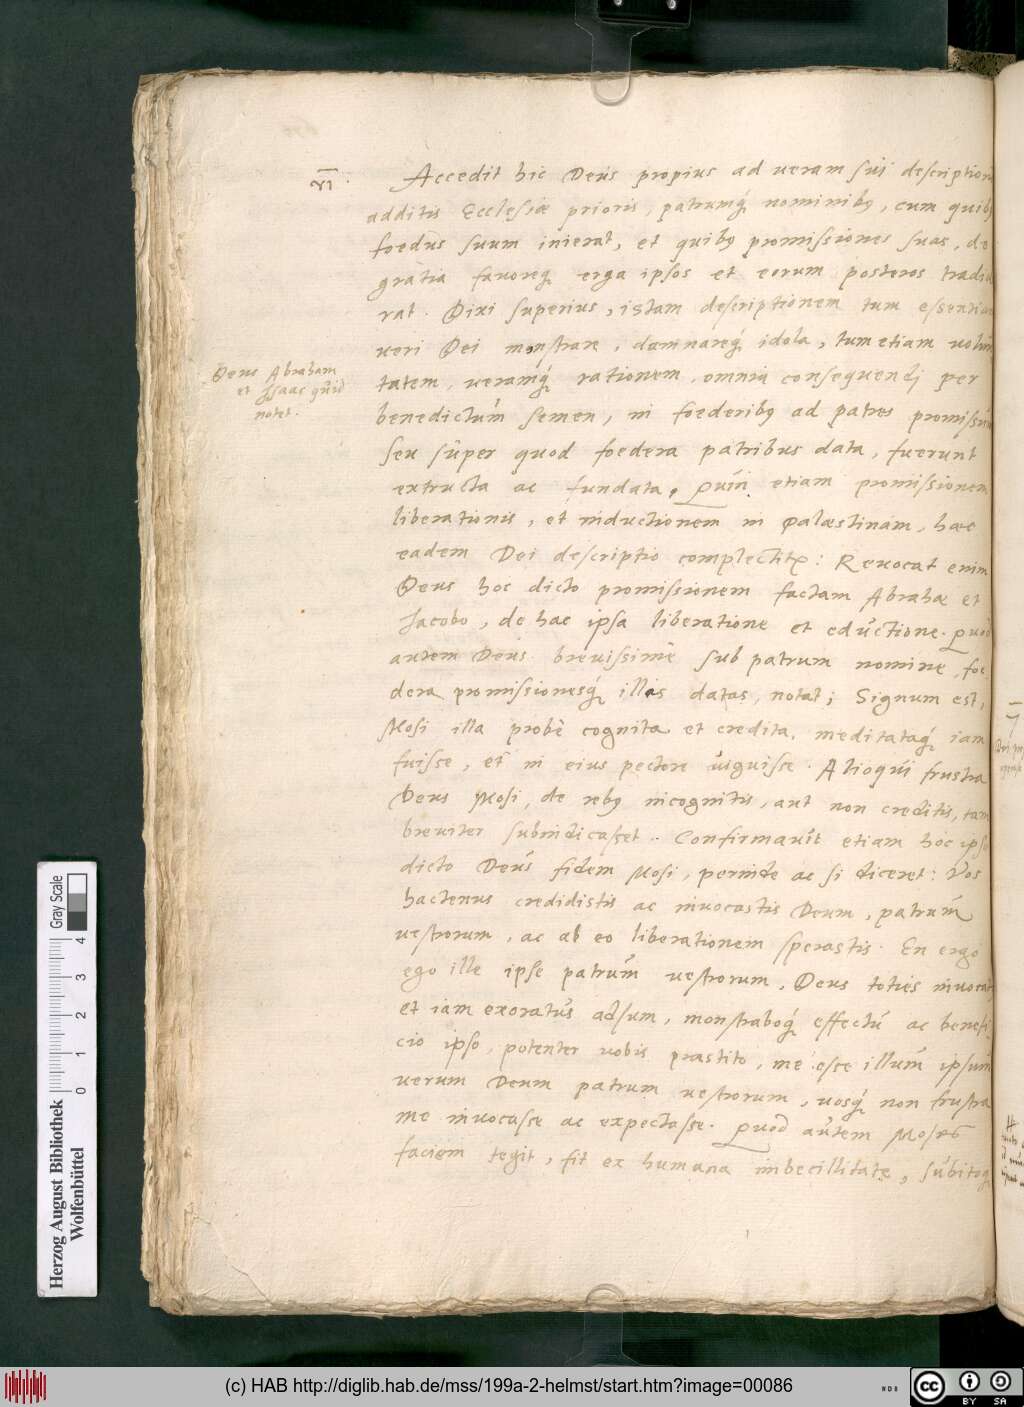 VI. Accedit hic Deus propius ad ueram sui description
additis Ecclesiæ prioris, patrumq́ nominiby, cum quiby
foedus suum inierat, et quiby promissiones suas, de
gratia fauoreq́ erga ipsos et eorum posteros tradi
rat. Dixi superius, istam descriptionem tum essentiam
ueri Dei monstrare, damnareq́ idola, tum etiam uolun
Deus Abraham
et Isaac quid
notet.
tatem, ueramq́ rationem, omnia consequendi per
benedictum semen, in foederiby ad patres promissum
seu super quod foedera patribus data, fuerunt
extructa ac fundata, Quin etiam promissionem
liberationis, et inductionem in Palæstinam, hæc
eadem Dei descriptio complectitr: Reuocat enim
Deus hoc dicto promissionem factam Abrahæ et
Jacobo, de hac ipsa liberatione et eductione. Quod
autem Deus breuissimè sub patrum nomine, foe
dera promissionesq́ illis datas, notat; Signum est,
Mosi illa probè cognita et credita, meditataq́ iam
fuisse, et in eius pectore uiguisse. Alioqui frustra
Deus Mosi, de reby incognitis, aut non creditis, tam
breuiter subindicasset. Confirmauit etiam hoc ipso
dicto Deus fidem Mosi, perinde ac si diceret: Vos
hactenus credidistis ac inuocastis Deum, patrum
uestrorum, ac ab eo liberationem sperastis. En ergo
ego ille ipse patrum uestrorum, Deus toties inuocat
et iam exoratus adsum, monstraboq́ effectu ac benefi
cio ipso, potenter uobis præstito, me esse illum ipsum
uerum Deum patrum uestrorum, uosq́ non frustra
me inuocasse ac expectasse. Quod autem Moses
faciem tegit, fit ex humana imbecillitate, subitoq́
Herzog August Bibliothek
Wolfenbüttel
0 1 2 3 4
Gray Scale
(c) HAB http://diglib.hab.de/mss/199a-2-helmst/start.htm?image=00086
cc BY SA